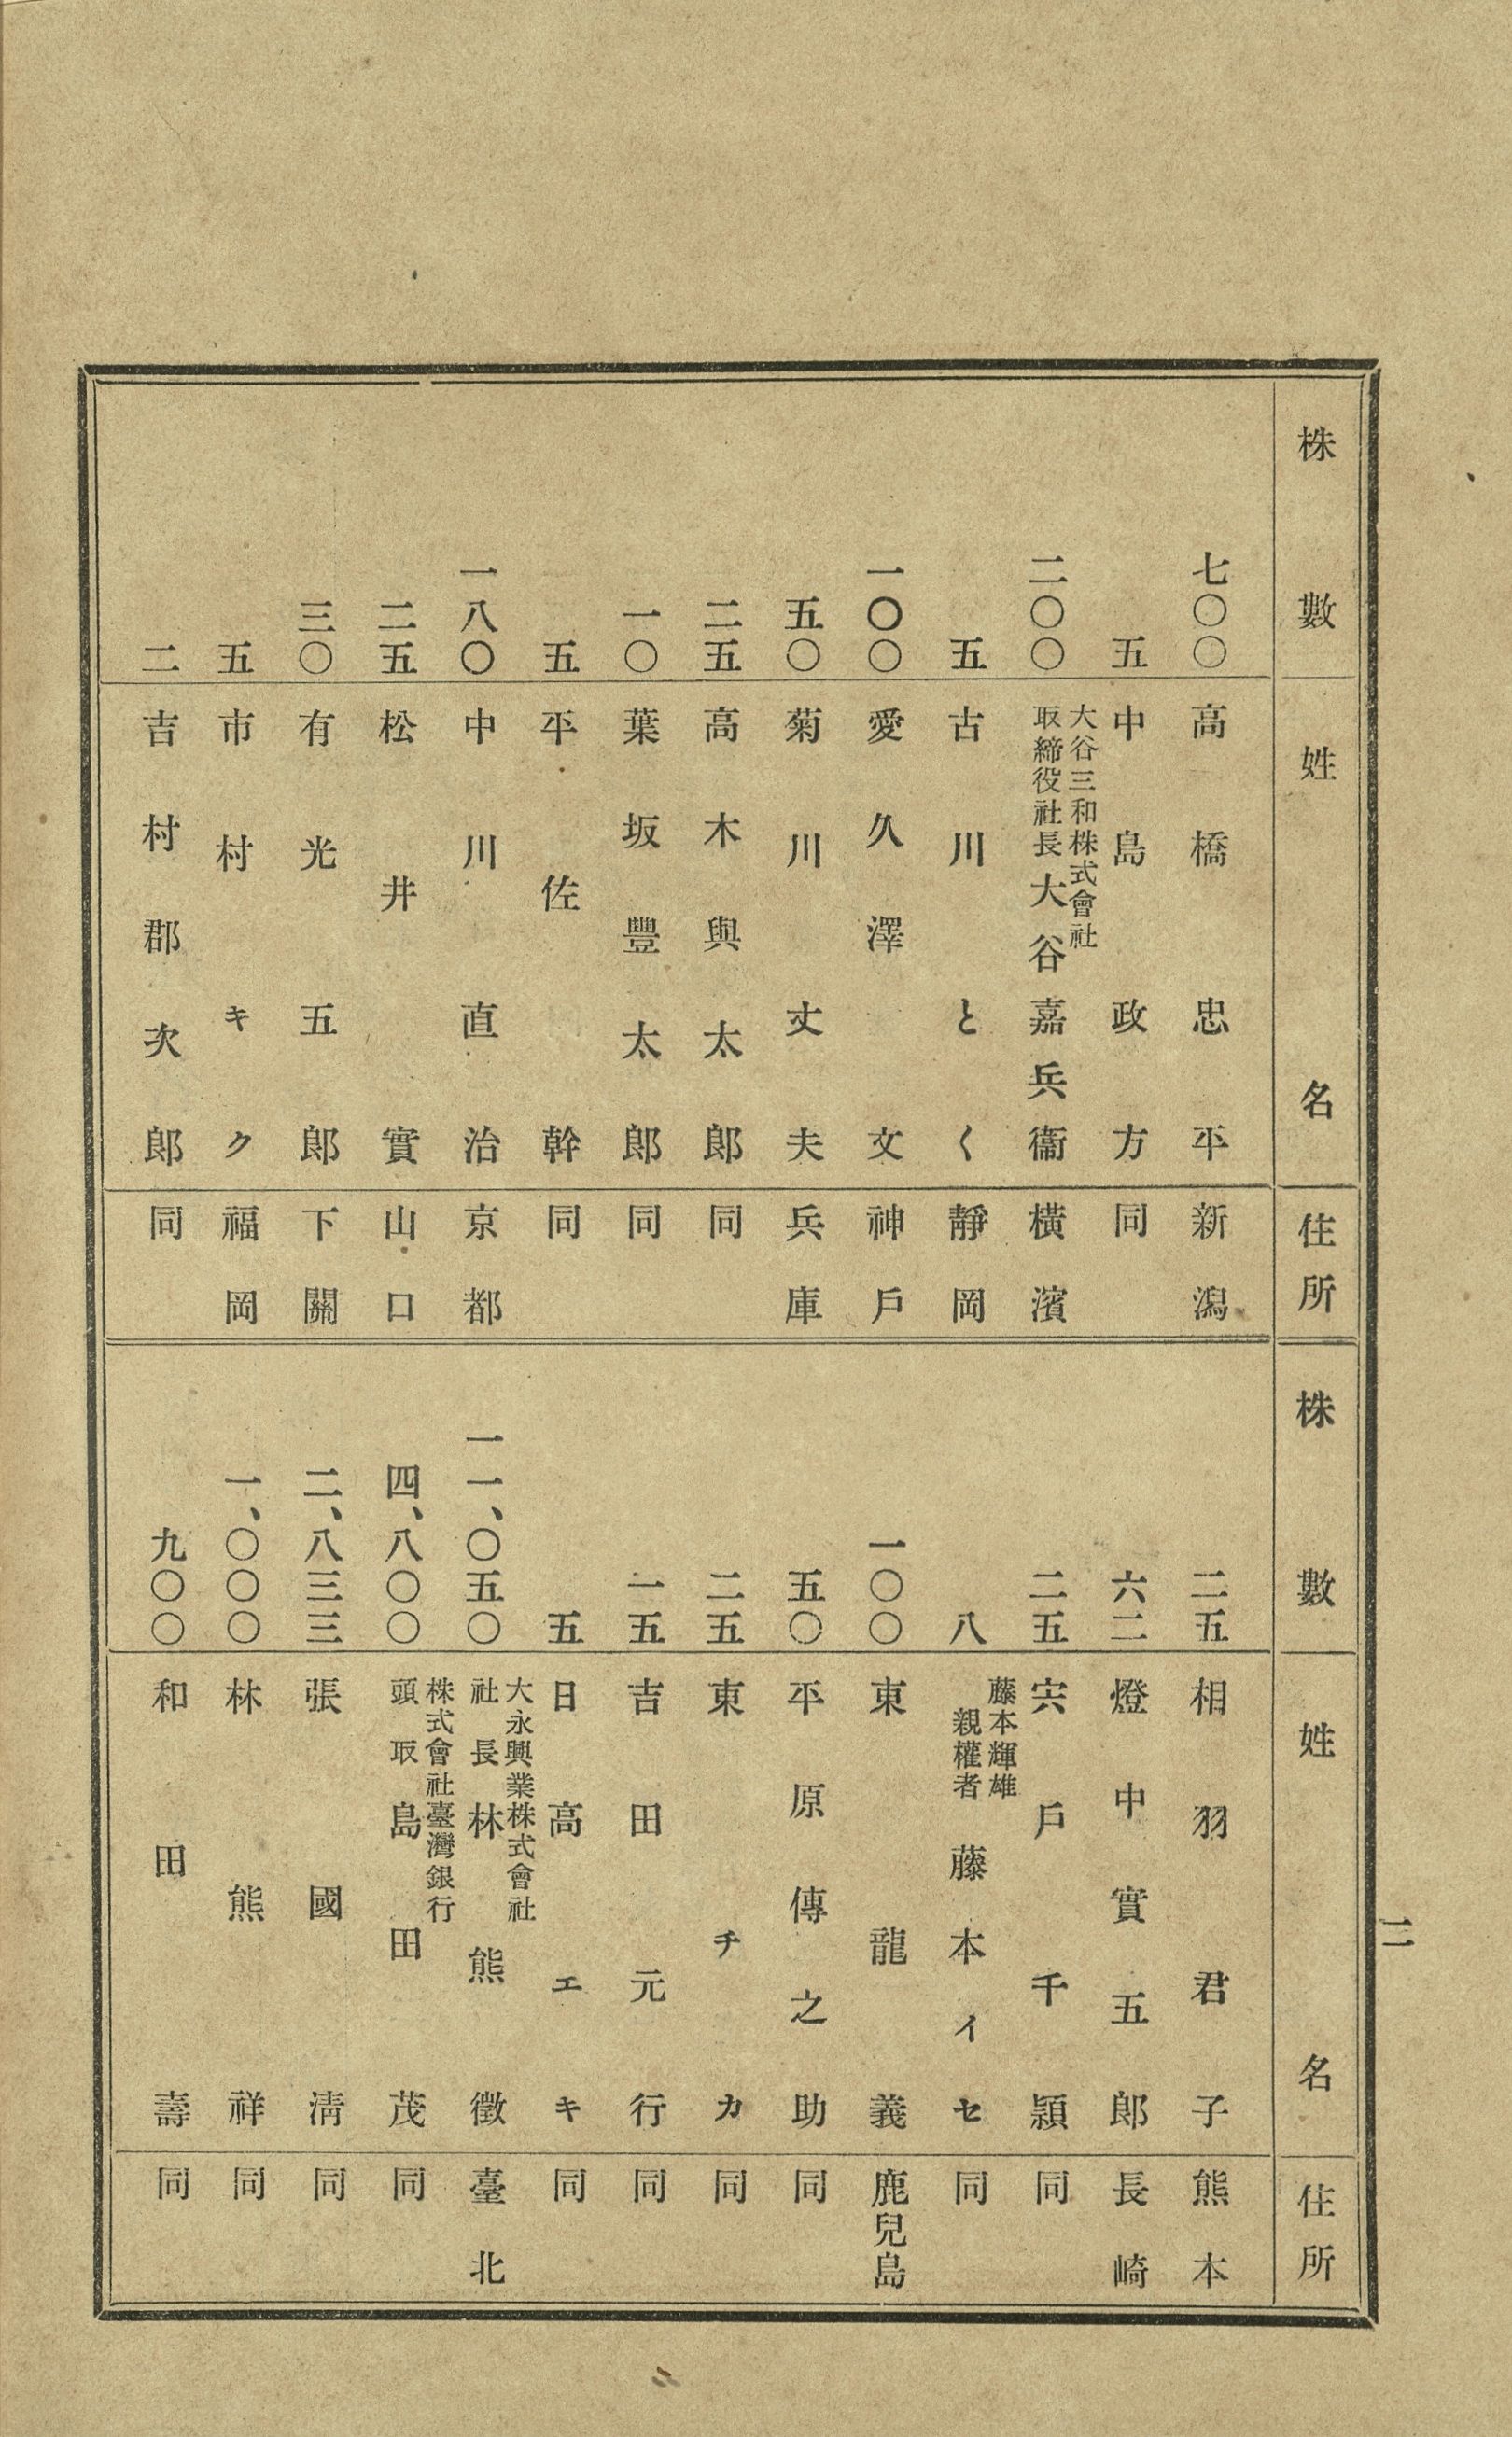 株數 姓名 住所
七〇〇 高橋忠平 新潟
五 中島政方 同
二〇〇 大谷三和株式會社取締役社長 大谷嘉兵衞 橫濱
五 古川とく 靜岡
一〇〇 愛久澤文 神戶
五〇 菊川丈夫 兵庫
二五 高木與太郎 同
一〇 葉坂豐太郎 同
五 平佐幹 同
一八〇 中川直治 京都
二五 松井實 山口
三〇 有光五郎 下關
五 市村キク 福岡
二 吉村郡次郎 同
株數 姓名 住所
二五 相羽君子 熊本
六二 燈中實五郎 長崎
二五 宍戶千頴 同
八 藤本輝雄親權者 藤本イセ 同
一〇〇 東龍義 鹿兒島
五〇 平原傳之助 同
二五 東チカ 同
一五 吉田元行 同
五 日高エキ 同
一一、〇五〇 大永興業株式會社社長 林熊徵 臺北
四、八〇〇 株式會社臺灣銀行頭取 島田茂 同
二、八三三 張國淸 同
一、〇〇〇 林熊祥 同
九〇〇 和田壽 同
二